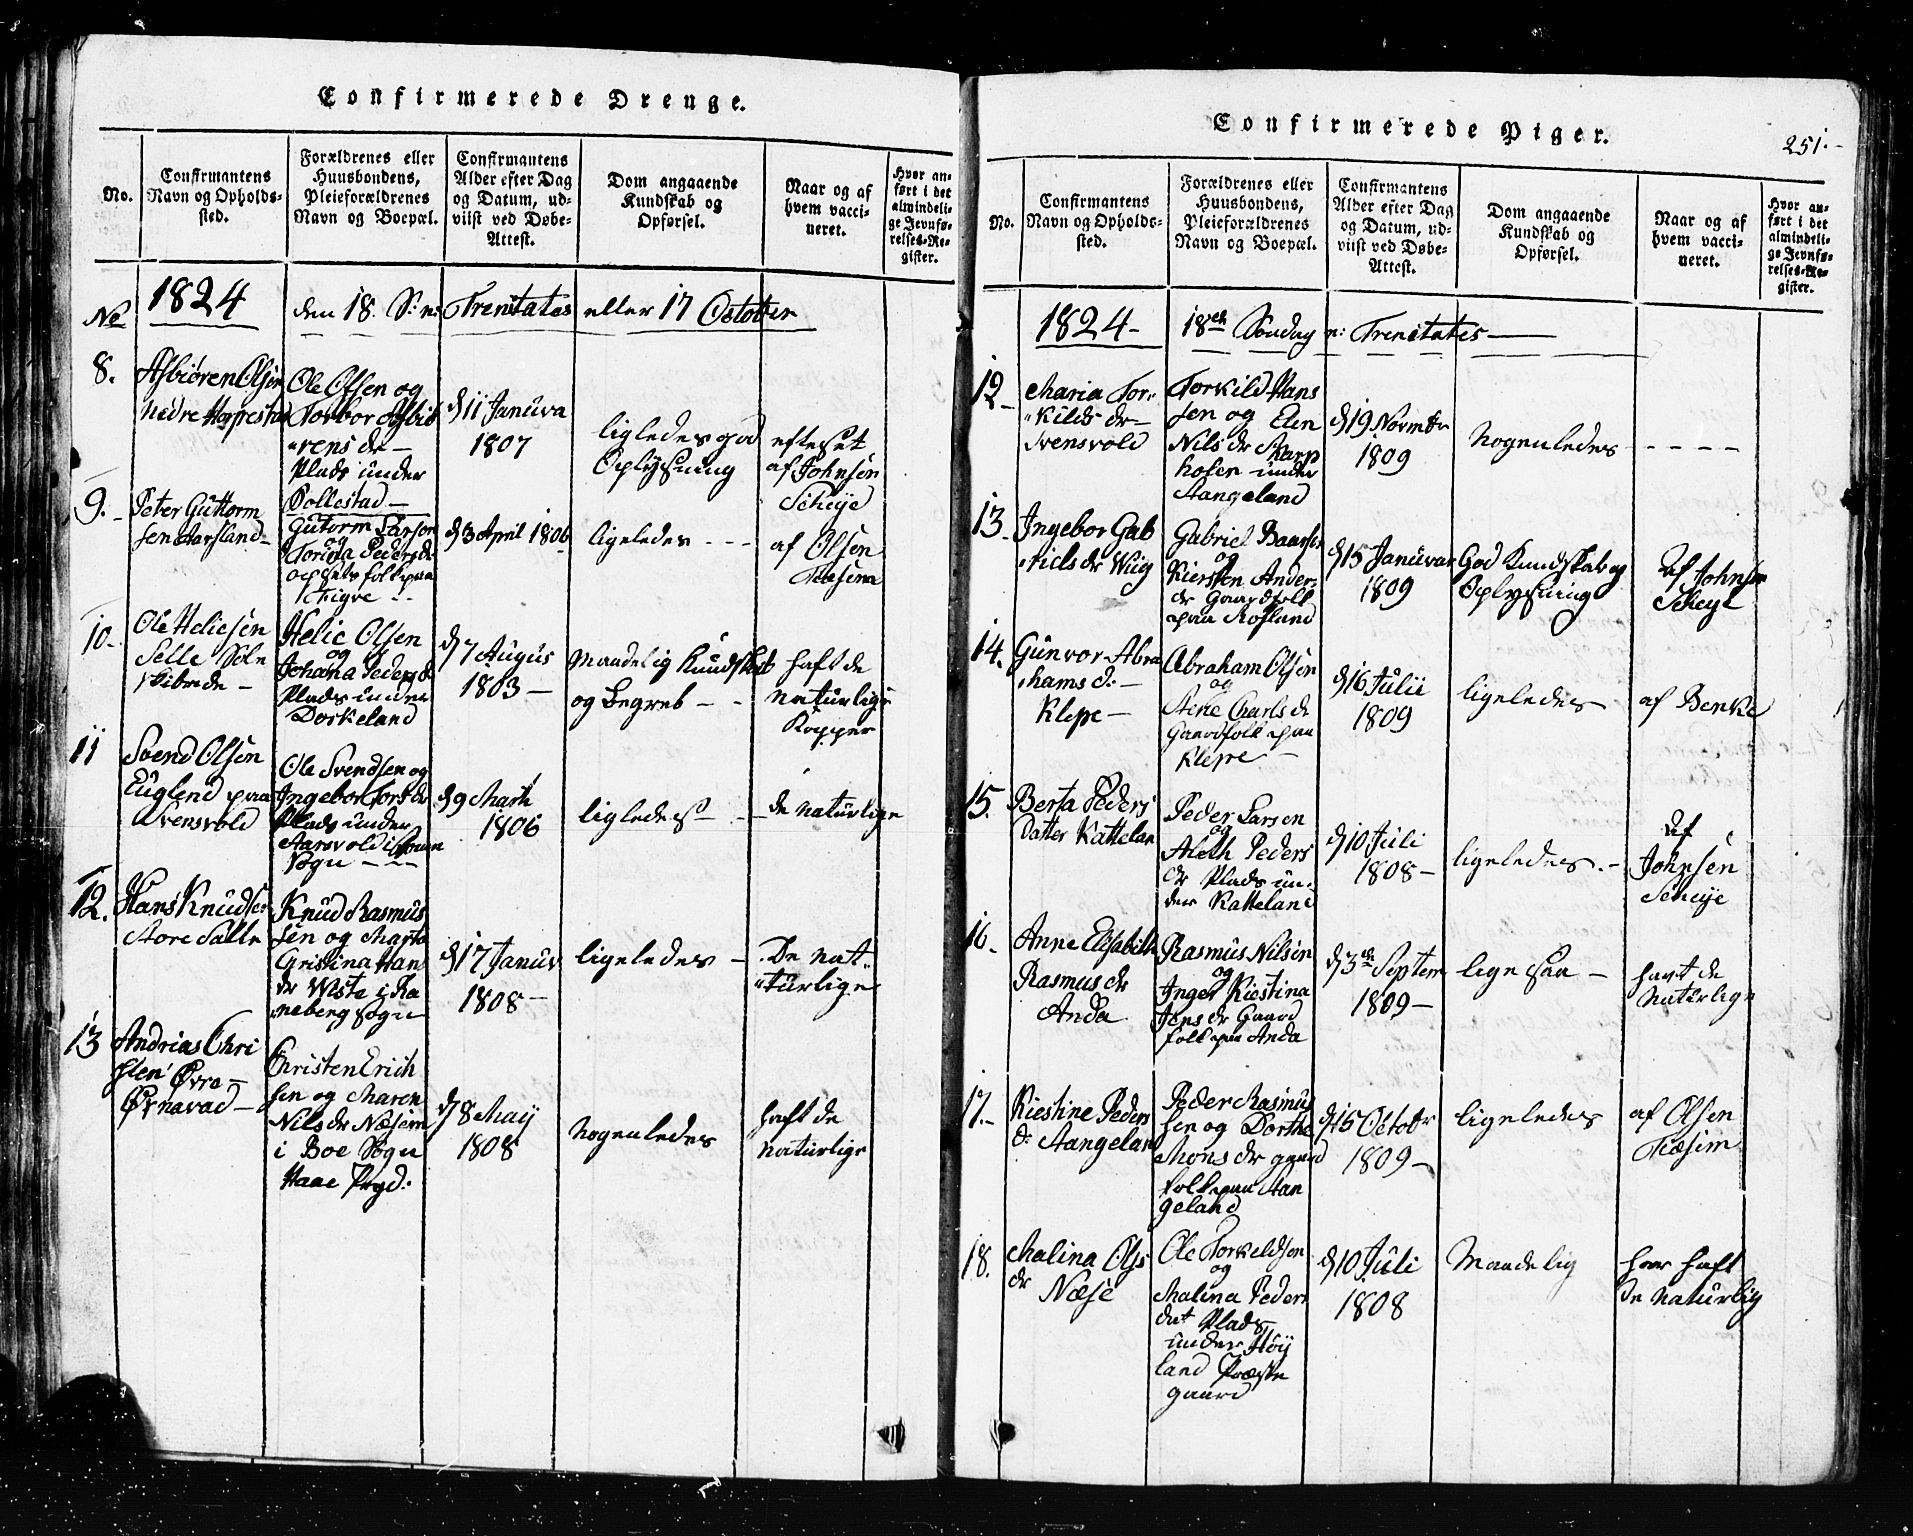 Confirmerede Drenge.
No.
Confirmantens
Navn og Opholds-
sted.
Forældrenes eller
Huusbondens,
Pleieforældrenes
Navn og Boepæl.
Confirmantens
Alder efter Dag
og Datum, ud-
viist ved Døbe-
Attest.
Dom angaaende
Kundskab og
Opførsel.
Naar og af
hvem vacci-
neret.
Hvor an-
ført i det
almindeli-
ge Jevnfø-
relses-Re-
gister.
No 1824 den 18. S: n: Trenitates eller 17 October
8.
Asbiøren Olsen
Nedre Hoppestad
Ole Olsen og
Torbor Asbiö
rens dr
Plads under
Pollestad
d 11 Januva
1807
ligledes god
Oplysning
efteset
af Johnsen
Scheye
9.
Peter Guttorm
sen Aarsland
Gutorm Larson
og
Torina Peders d
opsets folk paa
Figve
d 3 April 1806
ligeledes
af Olsen
Tiæsem
10.
Ole Heliesen
Selle Sole
skibrede
Helie Olsen
og
Johana Peders d
Plads under
Dorkeland
d 7 Augus
1803
Maadelig Kundskab
og Begreb
haft de
naturlige
Kopper
11
Svend Olsen
Euglend paa
Svensvold
Ole Svendsen og
Ingebor Tors dr
Plads under
Aarsvold i
Sogn
d 9 Marti
1806
ligledes
de naturlige
12.
Hans Knudsen
Store Salte
Knud Rasmus
sen og Marta
Cristina Han
dr Wiste i Ra
neberg sogn
d 17 Januv
1808
ligeledes
De nat
turlige
13
Andrias Chri
sten Øvre
Ørnavad
Christen Erich
sen og Maren
Nils dr Næsem
i Boe Sogn
Haae Prgd:
d 8 May
1808
Nogenledes
haft de
naturlige
Confirmerede Piger.
251.
No.
Confirmantens
Navn og Opholds-
sted.
Forældrenes eller
Huusbondens,
Pleieforældrenes
Navn og Boepæl.
Confirmantens
Alder efter Dag
og Datum, ud-
viist ved Døbe-
Attest.
Dom angaaende
Kundskab og
Opførsel.
Naar og af
hvem vacci-
neret.
Hvor an-
ført i det
almindeli-
ge Jevnfø-
relses-Re-
gister.
1824 18de Søndag n: Trenitates
12
Maria Tor
kilds dr
Svensvold
Torkild Hans
sen og Elen
Nils dr Skarp
holen under
Stangeland
d 19 Novmbr
1809
Nogenledes
13
Ingebor Gab
riels dr Wiig
Gabriel Baarsen
og
Kiersten Anders
dr Gaardfolk
paa Rosland
d 15 Januvar
1809
God Kundskab og
Oplysning
Af Johnsen
Scheye
14.
Gunvor Abra
hams d:
Klepe
Abraham Olsen
og
Stine Charls d
Gaardfolk paa
Klepe
d 16 Julii
1809
ligeledes
af Benke
15.
Berta Peders
Datter Katteland
Peder Larsen
og
Aleth Peders
dr Plads un-
der Katteland
d 10 Juli
1808
ligeledes
Af
Johnsen
Scheye
16
Anne Elisabeth
Rasmus dr
Anda
Rasmus Nilsen
og
Inger Kiestina
Jens dr Gaard
folk paa Anda
d 3de Septem
1809
ligesaa
havt de
naturlige
17.
Kiestine Peders
d: Stangeland
Peder Rasmus
sen og Dorthe
Mons dr gaard
folk paa Stan
geland
d 15 Octobr
1809
ligeledes
af Olsen
Tiæsem
18.
Malina Ols
dr Næse
Ole Torkeldsen
og
Malina Peders
dat Plads
under Høy
land Præste
gaard
d 10 Juli
1808
Maadelig
har haft
de naturlig